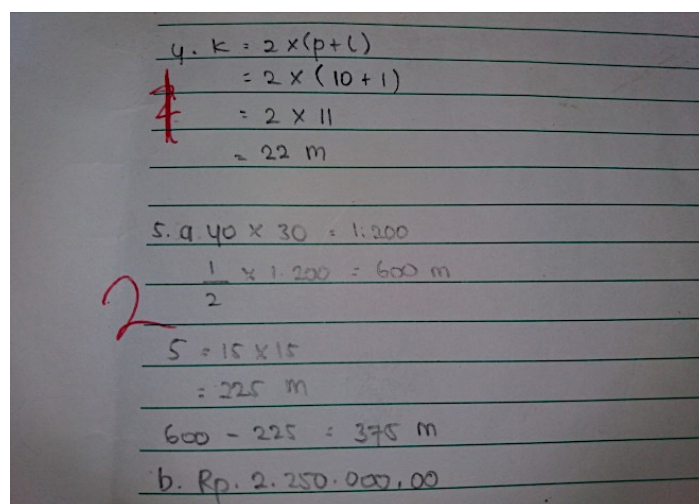 4. K = 2 x (p + l)
= 2 x (10 + 1)
= 2 x 11
= 22 m
5. a. 40 x 30 = 1.200
1/2 x 1.200 = 600 m
2
S = 15 x 15
= 225 m
600 - 225 = 375 m
b. Rp. 2.250.000,00